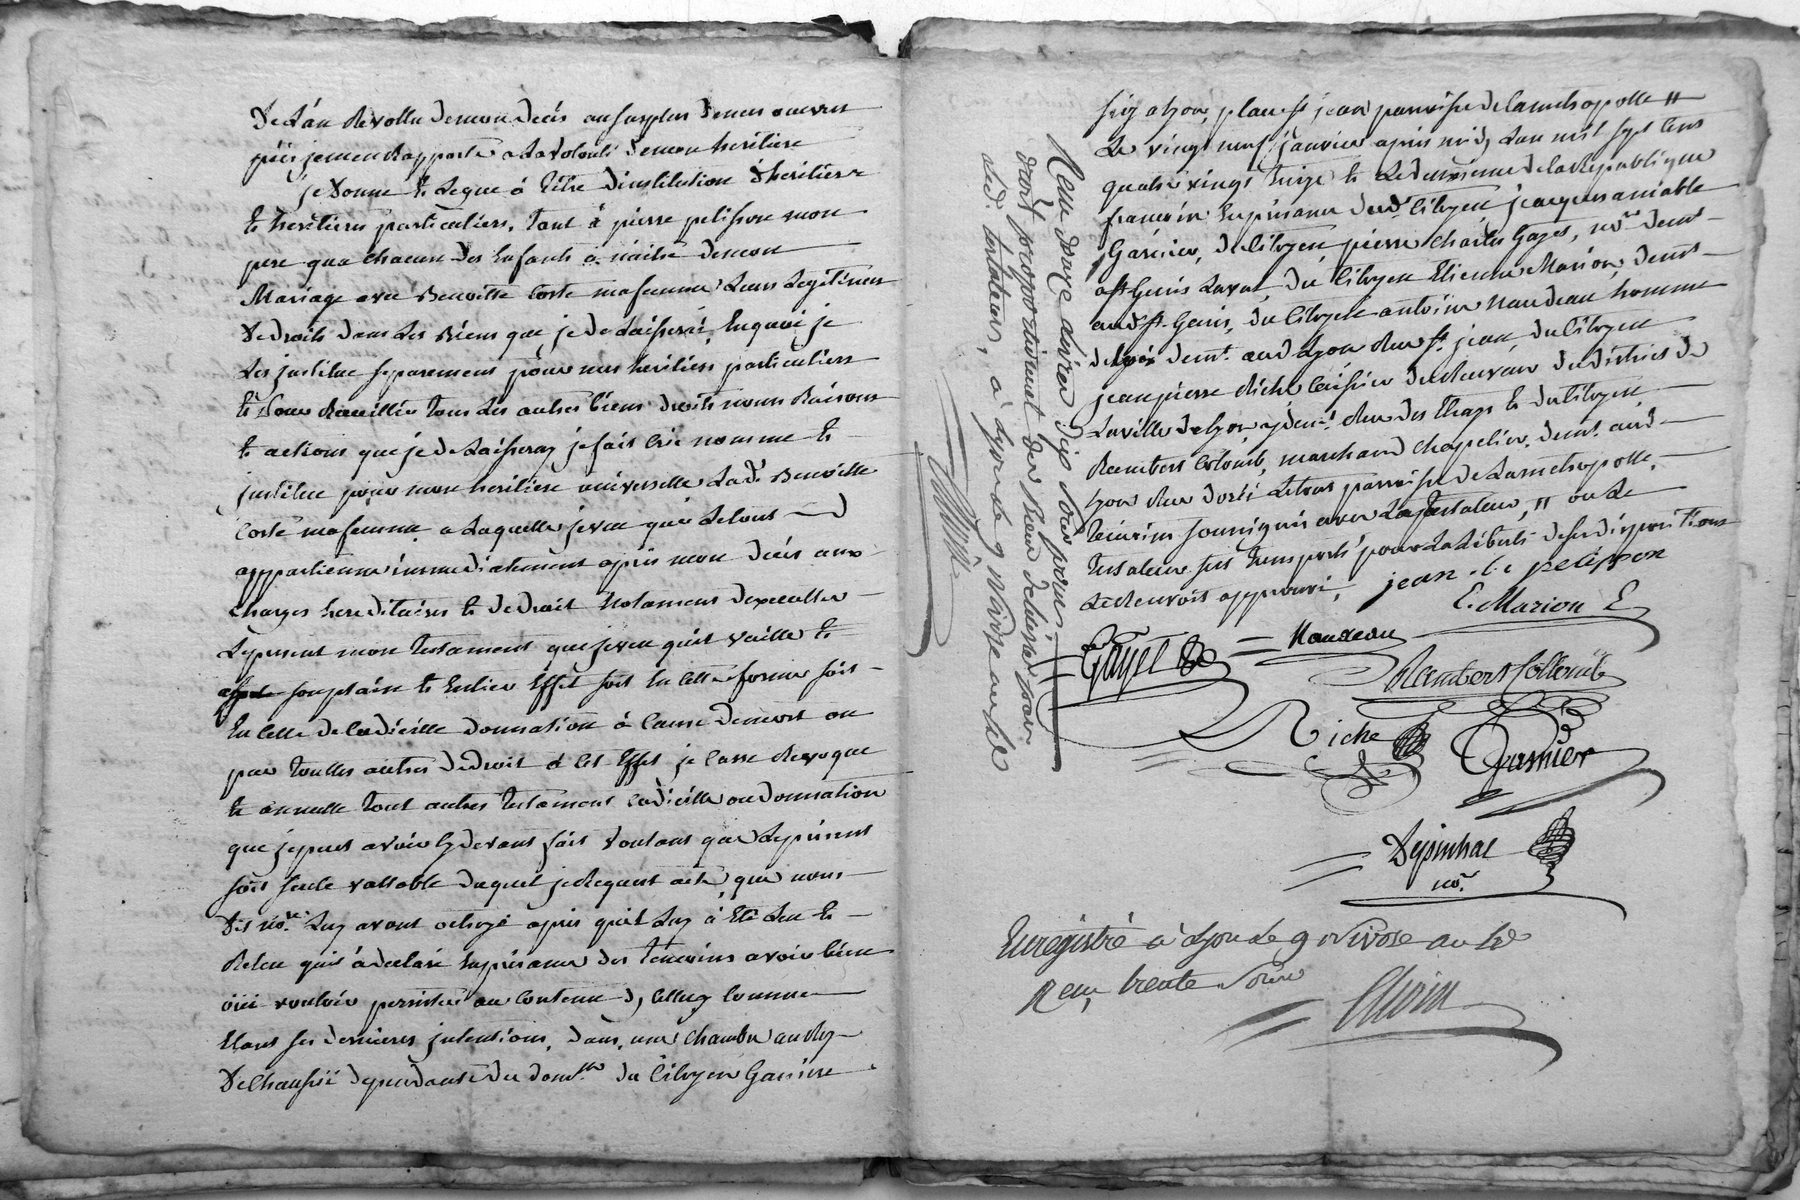 De l'an Revollu de mon Decés au surplus de mes oeuvres
pies je men Rapporte a la volonté de mon heritiere
je Donne et Legue à titre d'institution d'heritiers
et heritieres particuliers, tant à pierre pelisson mon
pere qua chacun des Enfants a naitre de mon
Mariage avec Benoitte Coste ma femme Leurs Legitimes
De droits dans Les Biens que je delaisserai, En quoi je
Les jnstitue separement pour mes heritiers particuliers
et Pour Recueillir tous Les autres biens droits noms Raisons
et actions que je De Laisseray je fais Crée nomme et
jnstitue pour mon heritiere universelle Lad.e Benoitte
Coste ma femme a Laquelle je veu que Le tout
appartienne immediatement après mon Decés aux
charges hereditaires et de droit Notament Dexecutter
Le present mon Testament que je veu qu'il vaille et
sorte son plain et Entier Effet soit En cette forme soit
En Celle de Codicille donnation à Cause de mort ou
par toutes autres De droit a Cet Effet je Casse Revoque
et annulle tout autres Testament Codicille ou donnation
que je puis avoir Cy devant fait voulant que Le present
soit seule vallable Duquel je Requert acte que nous
Dit no.re Luy avont octroyé après quil Luy à Eté Leu et
Releu quil à declaré En presence des temoins avoir bien
oüi vouloir persister au Contenu d'jcelluy Comme
Etant ses dernieres jntentions, dans une chambre au Rez
De Chaussée dependante du dom.lle du Citoyen Garnier
sis a Lyon, place S.t jean parroisse de la metropolle ,,
Le vingt neuf janvier après midy Lan mil sept Cent
quatre vingt treize et Le deuxieme de la Republique
francoise En presence dud.t Citoyen jacques amiable
Garnier, du Citoyen pierre Charles Gayet, no.re dem.t
a S.t Genis Laval, du Citoyen Etienne Marion, dem.t
aud. S.t Genis, du Citoyen antoine Naudeau homme
de loix dem.t aud Lyon Rue S.t jean, du Citoyen
jean pierre Riche Caissier du Receveur du district de
La ville de Lyon y dem.t Rue des Etraps et du Citoyen
Rambert Colomb, marchand Chapelier, dem.t aud
Lyon Rue Le tout parroisse de La metropolle,
temoins soussignés avec Le Testateur, ,, ou Le
sus Emporté pour La Liberté de ses dispositions
Le Renvoit approuvé, jean-b.te pelisson
E. Marion E
Gayet = Naudeau
Rambert Collomb
Riche Garnier
Depinhac
no.re
Enregistré à Lyon Le 9 nivose an
Reçu trente Sous
Reçu douze Livres dix sous pour
droit proportionnel des Biens delaissés par
led. testateur, à Lyon le 9 nivose an